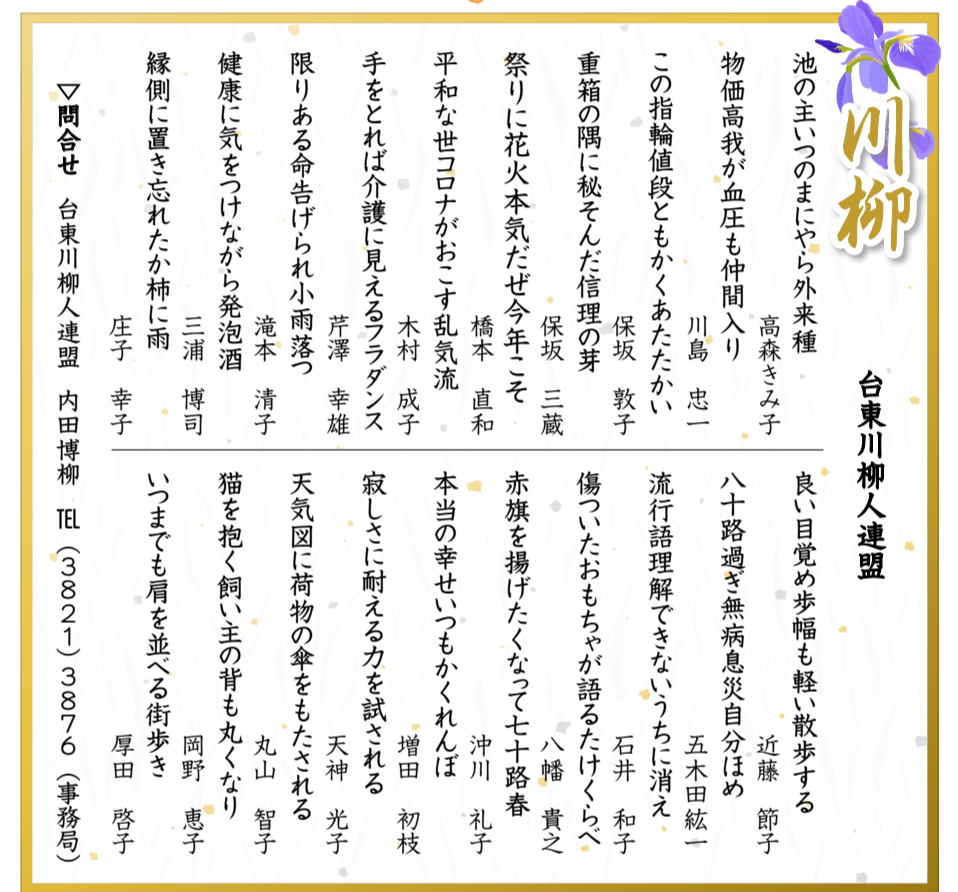 川柳
台東川柳人連盟
池の主いつのまにやら外来種
高森きみ子
物価高我が血圧も仲間入り
川島 忠一
この指輪値段ともかくあたたかい
保坂 敦子
重箱の隅に秘そんだ信理の芽
保坂 三蔵
祭りに花火本気だぜ今年こそ
橋本 直和
平和な世コロナがおこす乱気流
木村 成子
手をとれば介護に見えるフラダンス
芹澤 幸雄
限りある命告げられ小雨落つ
滝本 清子
健康に気をつけながら発泡酒
三浦 博司
縁側に置き忘れたか柿に雨
庄子 幸子
良い目覚め歩幅も軽い散歩する
近藤 節子
八十路過ぎ無病息災自分ほめ
五木田紘一
流行語理解できないうちに消え
石井 和子
傷ついたおもちゃが語るたけくらべ
八幡 貴之
赤旗を揚げたくなって七十路春
沖川 礼子
本当の幸せいつもかくれんぼ
増田 初枝
寂しさに耐える力を試される
天神 光子
天気図に荷物の傘をもたされる
丸山 智子
猫を抱く飼い主の背も丸くなり
岡野 恵子
いつまでも肩を並べる街歩き
厚田 啓子
▽問合せ 台東川柳人連盟 内田博柳 TEL（3821）3876（事務局）